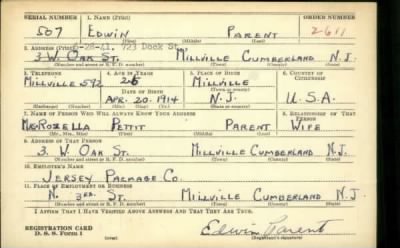 SERIAL NUMBER 1. NAME (Print) ORDER NUMBER
507 EDWIN PARENT 2611
(First) (Middle) (Last)
2. ADDRESS (Print) 5-28-41. 723 Dock St.
3 W. OAK ST. MILLVILLE CUMBERLAND N.J.
(Number and street or R. F. D. number) (Town) (County) (State)
3. TELEPHONE 4. AGE IN YEARS 5. PLACE OF BIRTH 6. COUNTRY OF CITIZENSHIP
MILLVILLE 592 26 MILLVILLE
DATE OF BIRTH (Town or county)
APR. 20. 1914 N.J. U.S.A
(Exchange) (Number) (Mo.) (Day) (Yr.) (State or country)
7. NAME OF PERSON WHO WILL ALWAYS KNOW YOUR ADDRESS 8. RELATIONSHIP OF THAT PERSON
MRS ROZELLA PETTIT PARENT WIFE
(Mr., Mrs., Miss) (First) (Middle) (Last)
9. ADDRESS OF THAT PERSON
3. W. OAK ST. MILLVILLE CUMBERLAND N.J.
(Number and street or R. F. D. number) (Town) (County) (State)
10. EMPLOYER'S NAME
JERSEY PACKAGE CO.
11. PLACE OF EMPLOYMENT OR BUSINESS
N. 3RD. ST. MILLVILLE CUMBERLAND N.J.
(Number and street or R. F. D. number) (Town) (County) (State)
I AFFIRM THAT I HAVE VERIFIED ABOVE ANSWERS AND THAT THEY ARE TRUE.
REGISTRATION CARD
D. S. S. Form 1 Edwin Parent
(over) (Registrant's signature)